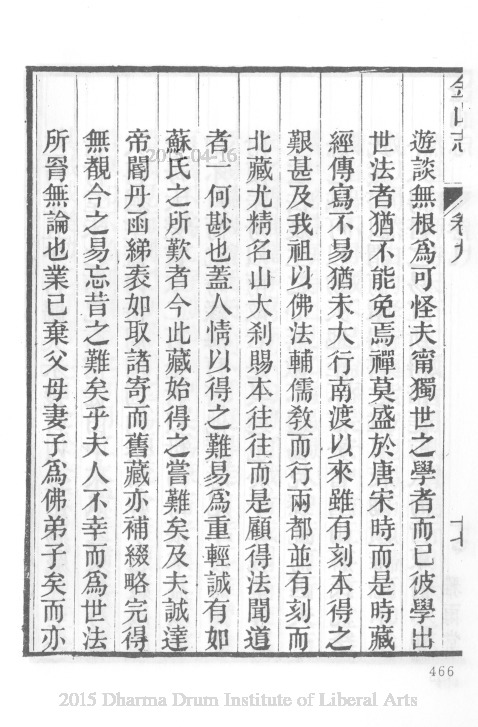 金山志　卷九　十七
遊談無根爲可怪夫甯獨世之學者而已彼學出
世法者猶不能免焉禪莫盛於唐宋時而是時藏
經傳寫不易猶未大行南渡以來雖有刻本得之
艱甚及我祖以佛法輔儒敎而行兩都並有刻而
北藏尤精名山大刹賜本往往而是顧得法聞道
者一何尠也蓋人情以得之難易爲重輕誠有如
蘇氏之所歎者今此藏始得之嘗難矣及夫誠達
帝閽丹函綈袠如取諸寄而舊藏亦補綴略完得
無覩今之易忘昔之難矣乎夫人不幸而爲世法
所胥無論也業已棄父母妻子爲佛弟子矣而亦
466
2015-04-16
2015 Dharma Drum Institute of Liberal Arts